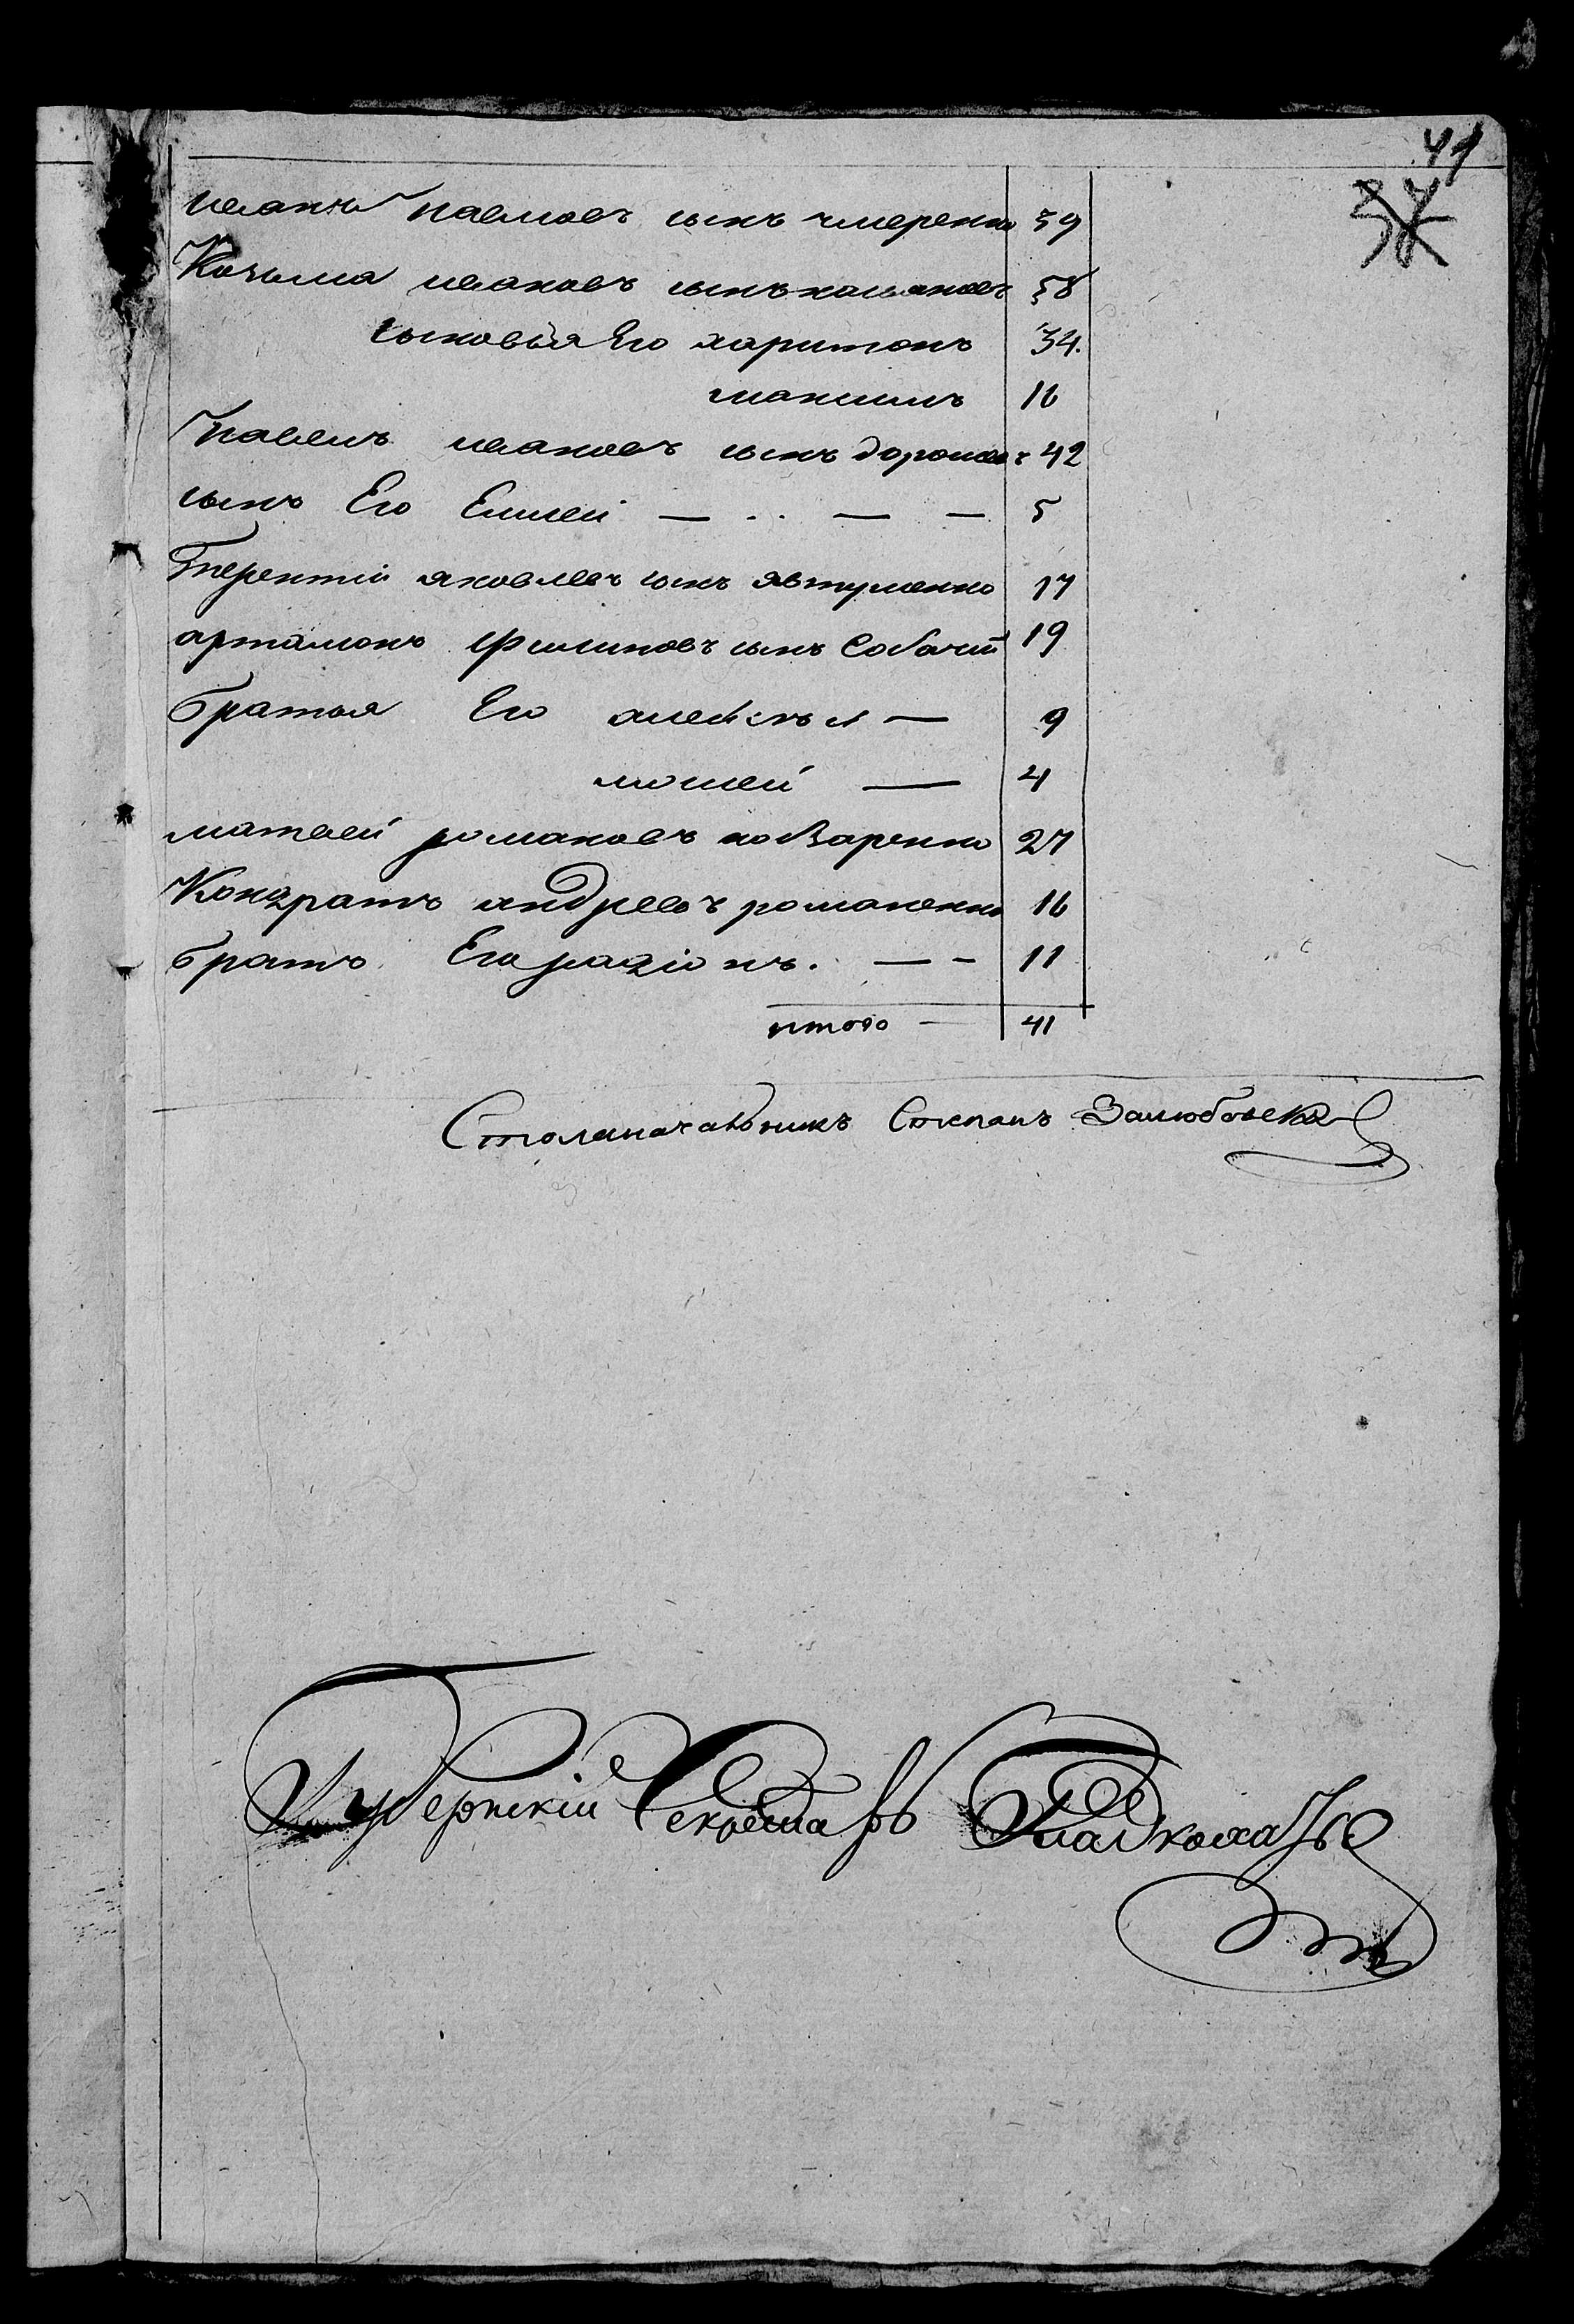 41
34
иванъ павловъ сынъ чмеренко 59
Козьма ивановъ сынъ касьяновъ 58
сыновья Его харитонъ 34.
максимъ 16
павелъ ивановъ сынъ дорошевъ 42
сынъ Его Елисей — .. — — 5
терентій яковлевъ сынъ явтушенко 17
артамонъ филиповъ сынъ собачий 19
братья Его алексѣй — 9
мосией — 4
матвей романовъ поваренко 27
Кондратъ андреевъ романенко 16
братъ Его радіонъ. — - 11
итого — 41
Столаначальникъ Степанъ Залюбовски
Губернскій Секретарь Гладкохатъ